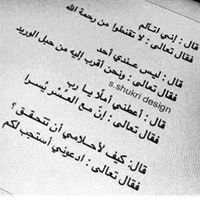 قال : إني أتألم
فقال تعالى : لا تقنطوا من رحمة الله
قال : ليس عندي أحد
فقال تعالى : ونحن أقرب إليه من حبل الوريد
s.shukri design
قال : أعطني أملًا يا رب
فقال تعالى : إنّ مع العُسْر يُسرا
قال: كيف لأحلامي أن تتحقق ؟
فقال تعالى : ادعوني أستجب لكم